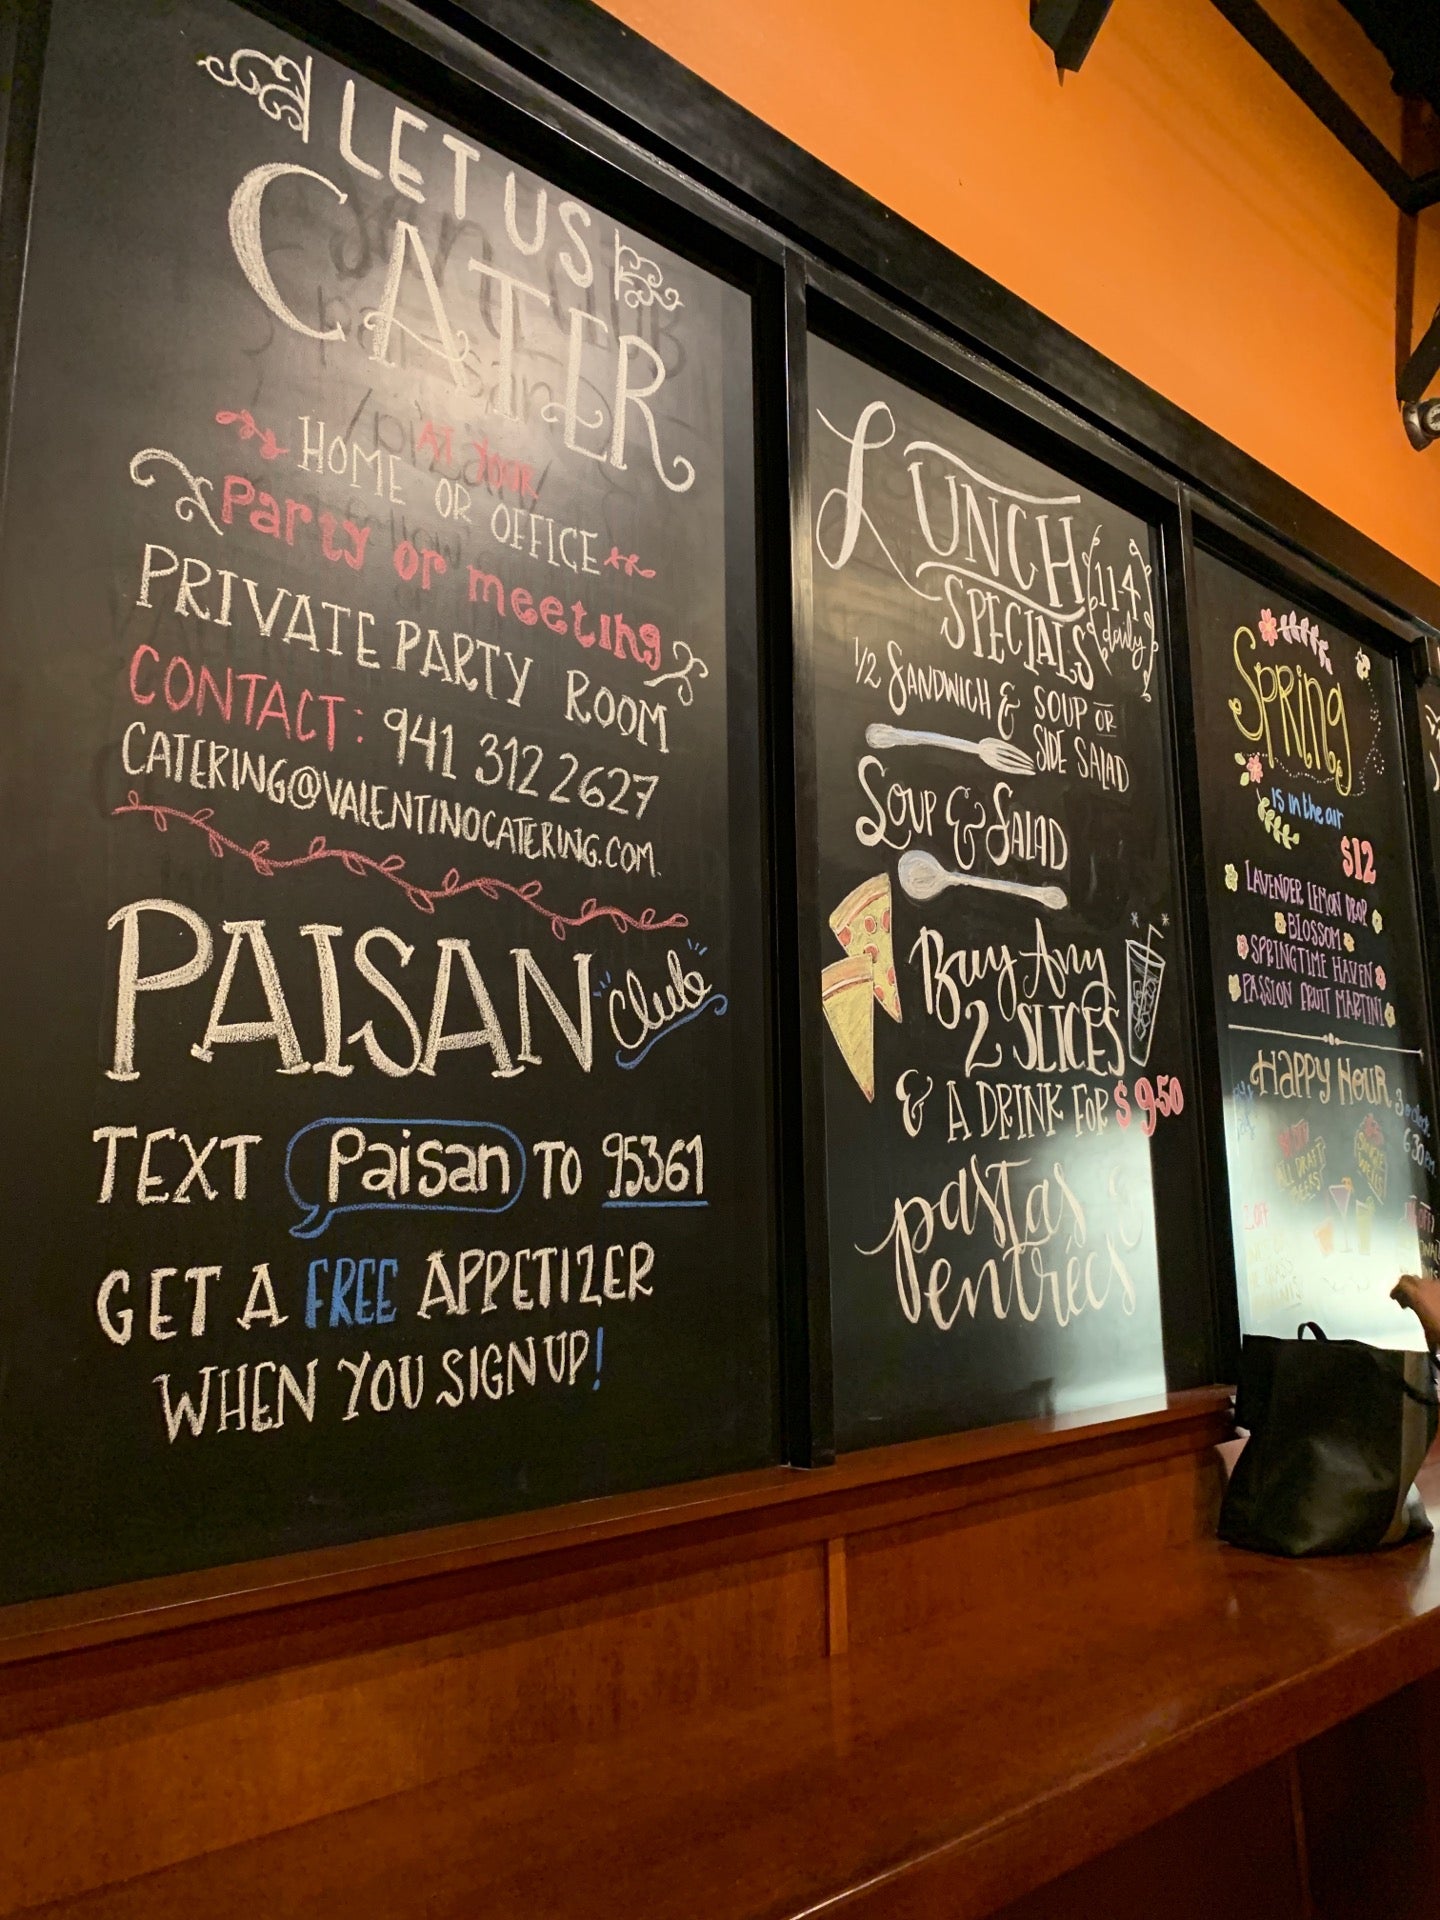 LET US
CATER
AT YOUR
HOME OR OFFICE
Party or meeting
PRIVATE PARTY ROOM
CONTACT: 941 312 2627
CATERING@VALENTINOCATERING.COM.
PAISAN Club
TEXT Paisan TO 95361
GET A FREE APPETIZER
WHEN YOU SIGN UP!
LUNCH
SPECIALS
11-4
daily
1/2 SANDWICH & SOUP OR
SIDE SALAD
SOUP & SALAD
Buy Any
2 SLICES
& A DRINK FOR $9.50
pastas &
entrées
Spring
is in the air
$12
LAVENDER LEMON DROP
BLOSSOM
SPRINGTIME HAVEN
PASSION FRUIT MARTINI
HAPPY HOUR
3 o'clock
6:30 PM
ALL DRAFT
BEERS
SINGLE
WELLS